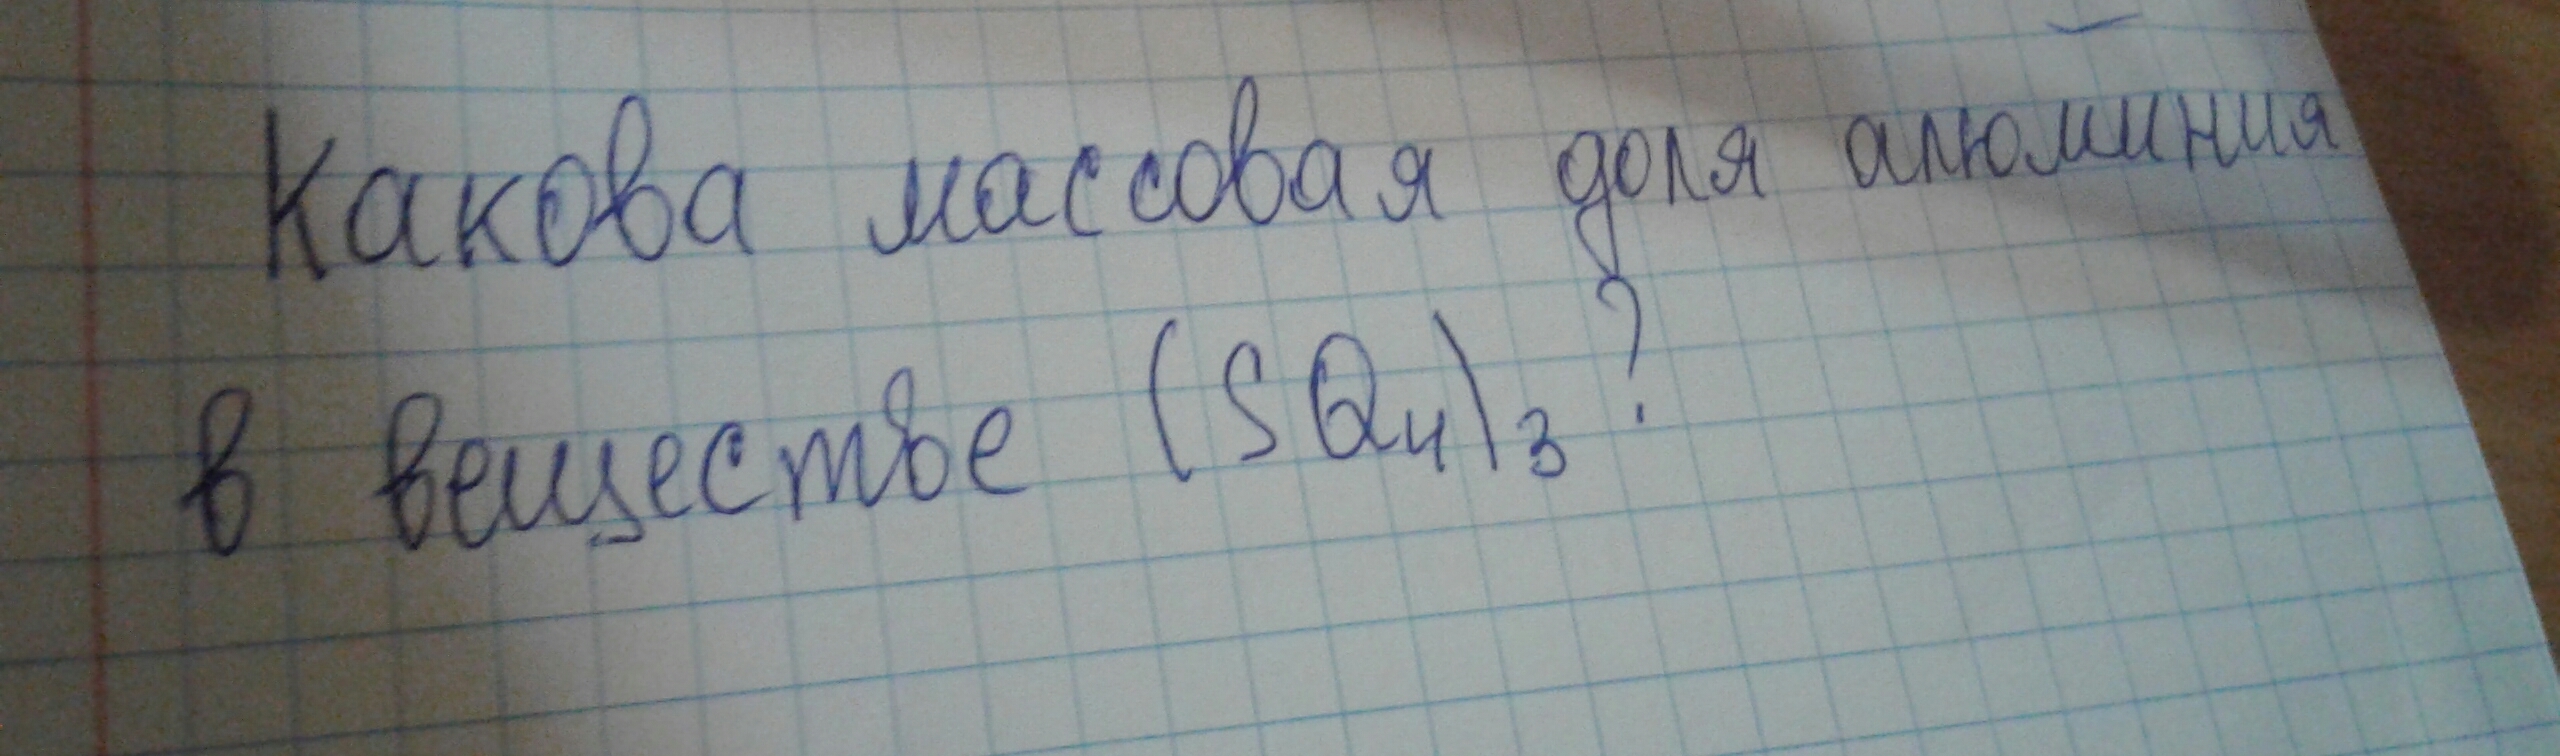 Какова массовая доля алюминия
в веществе (SO₄)₃?